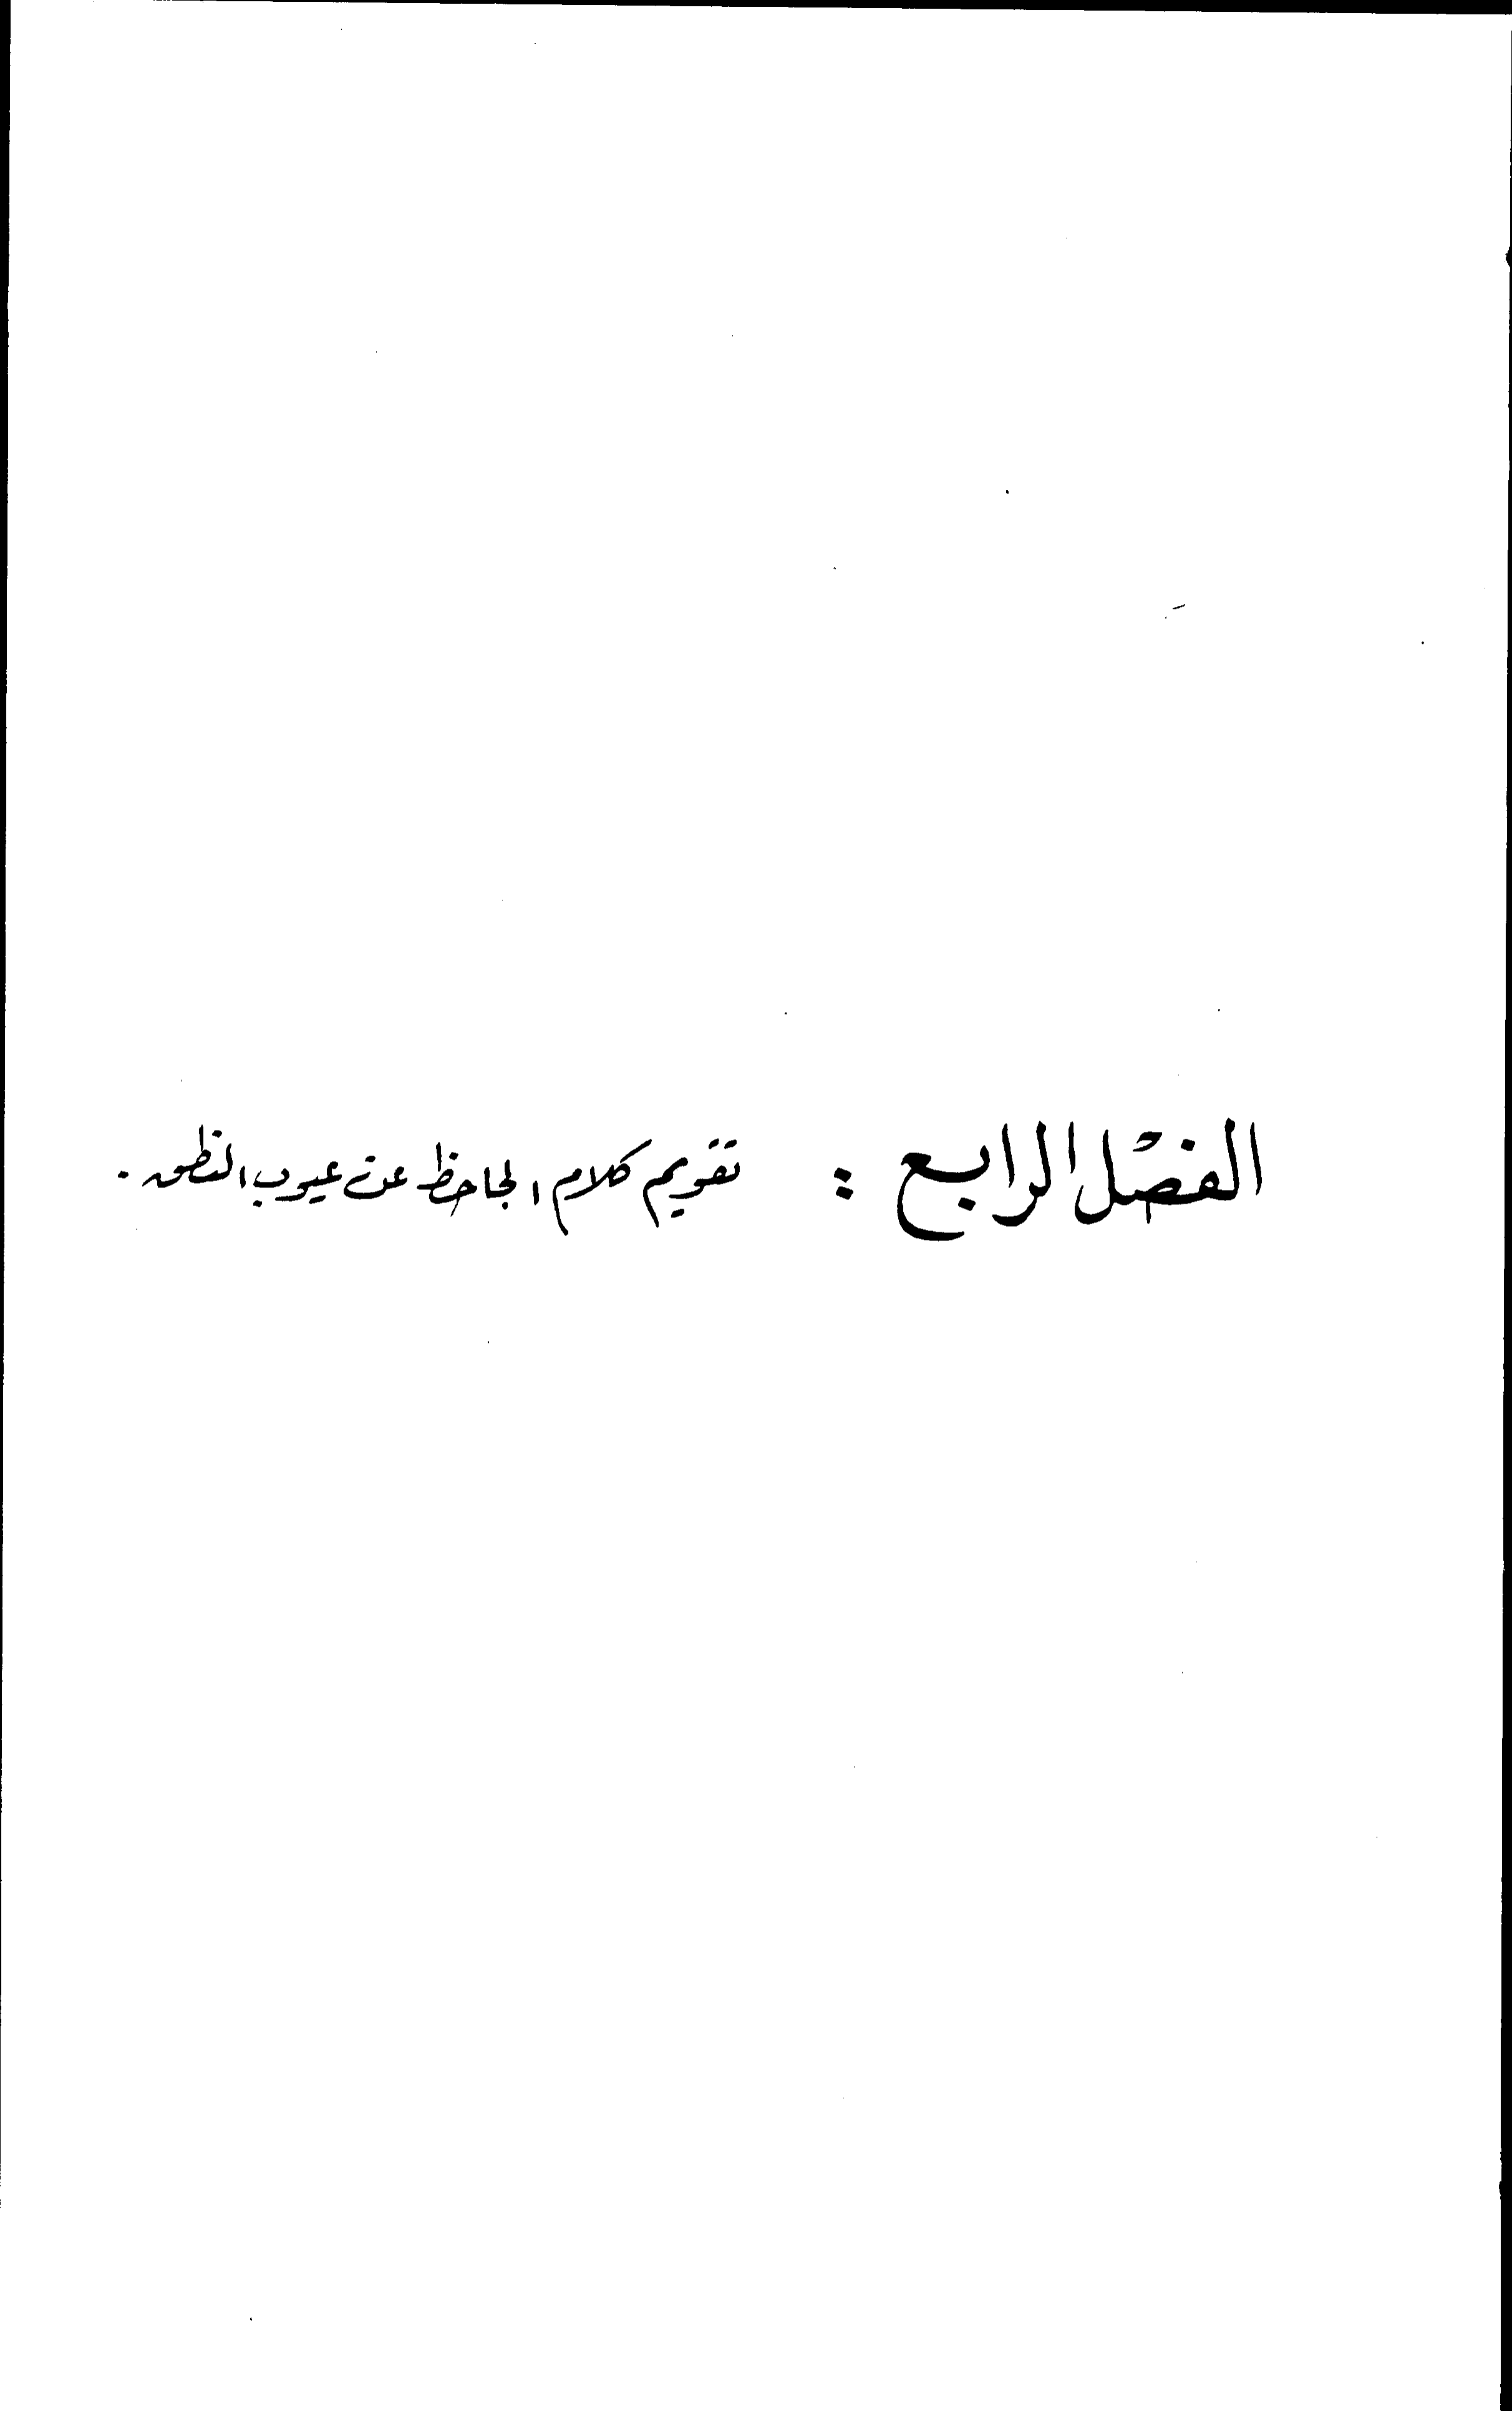 الفصل الرابع : تقويم كلام الجاحظ عن عيوب النطق .